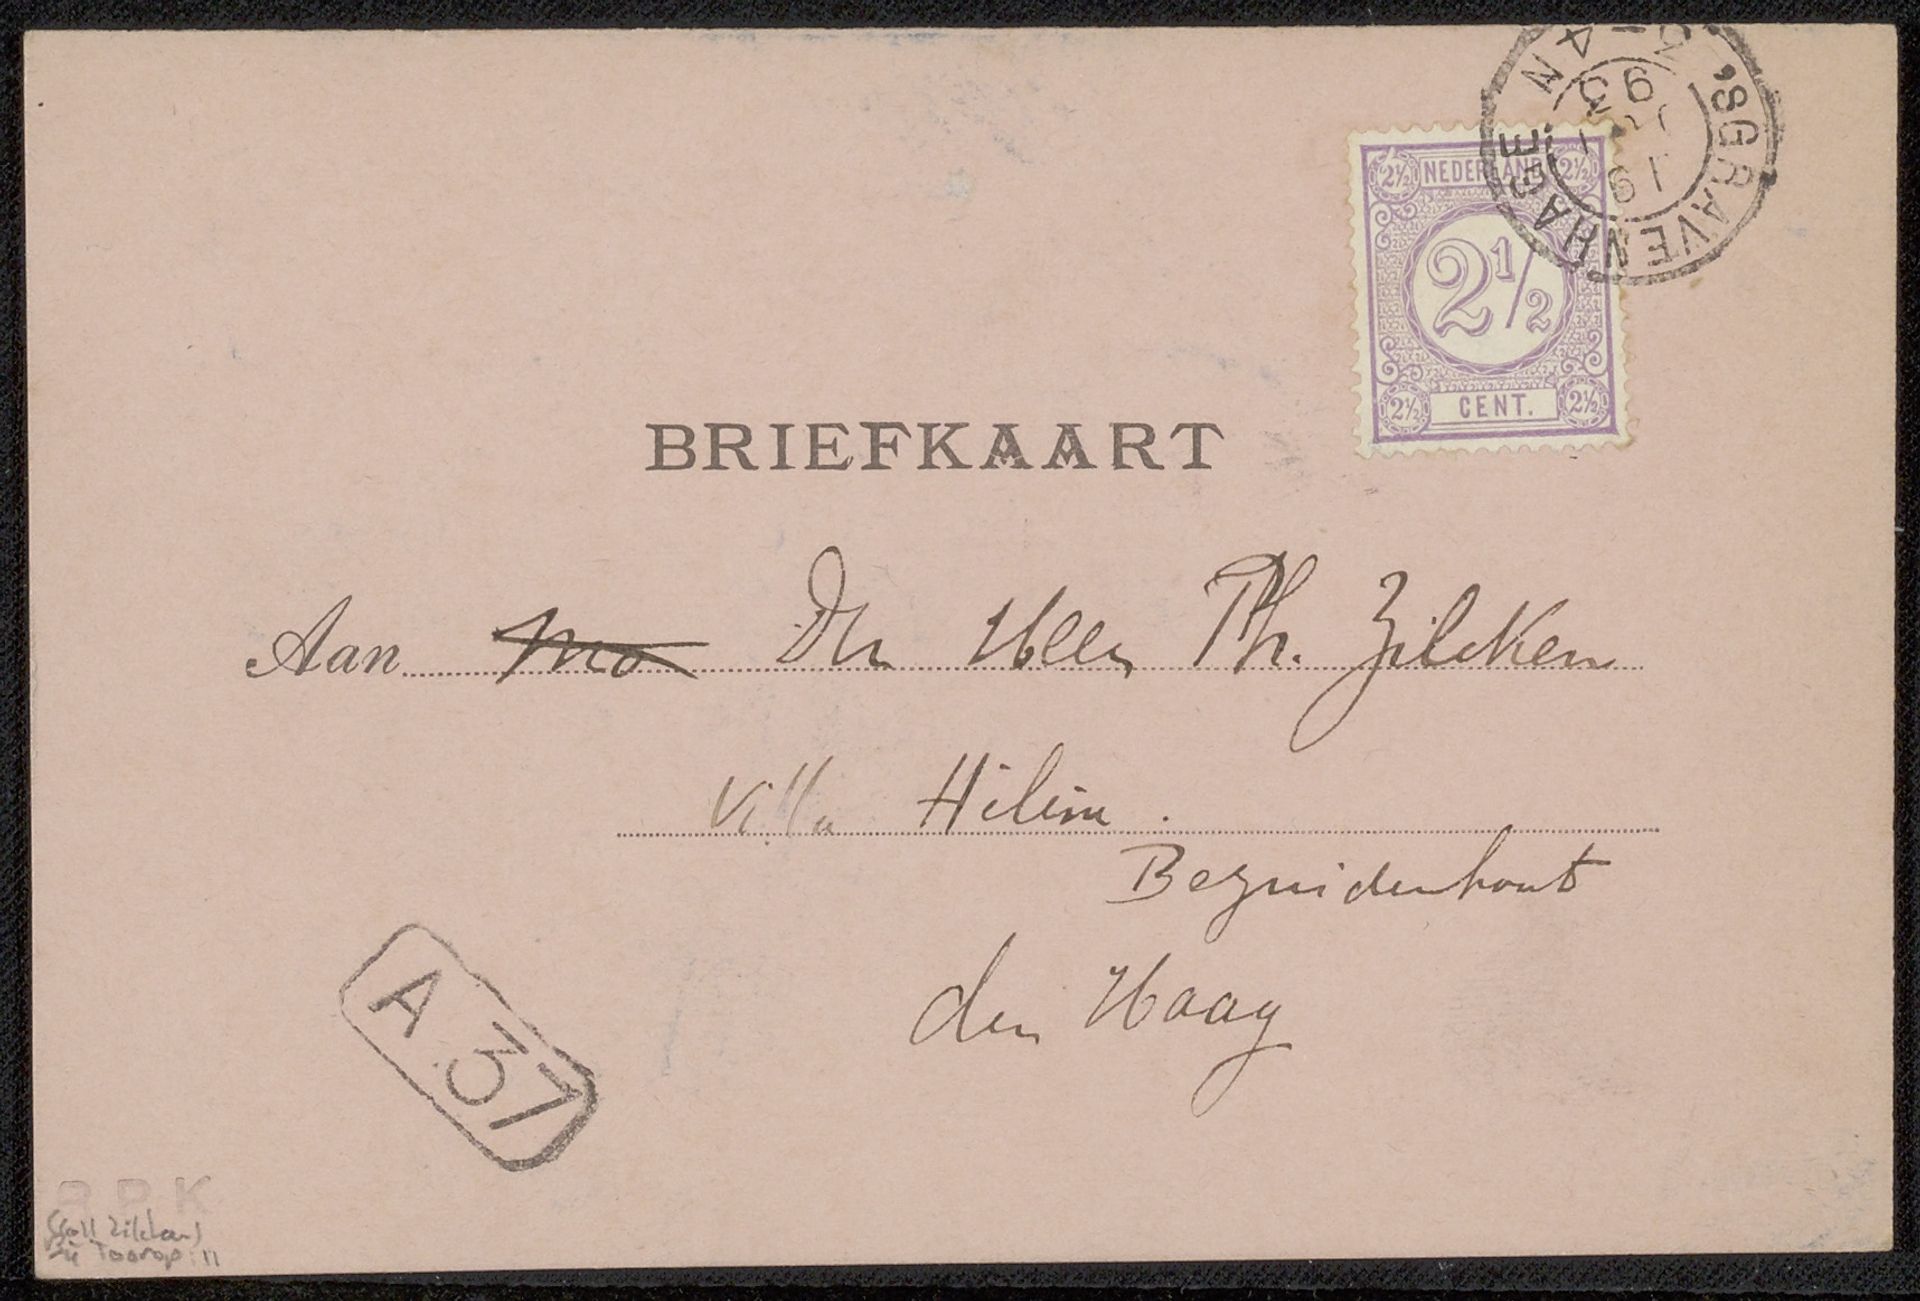 'SGRAVENHAGE
3-4 N
19
93
NEDERLAND
2½ 2½
2½
2½ CENT. 2½
BRIEFKAART
Aan Den Heer Ph. Zilcken
Villa Hélène.
Bezuidenhout
den Haag
A 37
R P K
(coll Zilcken)
Toorop: 11